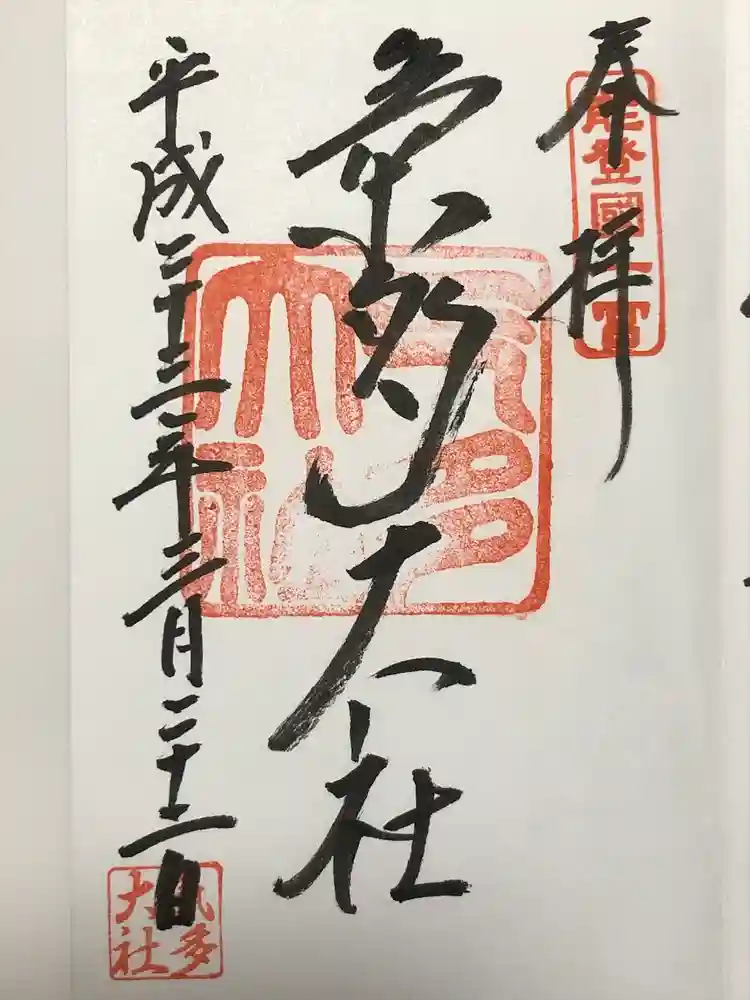 奉拝
能登國一宮
氣多大社
氣多
大社
平成二十三年三月二十二日
氣多
大社